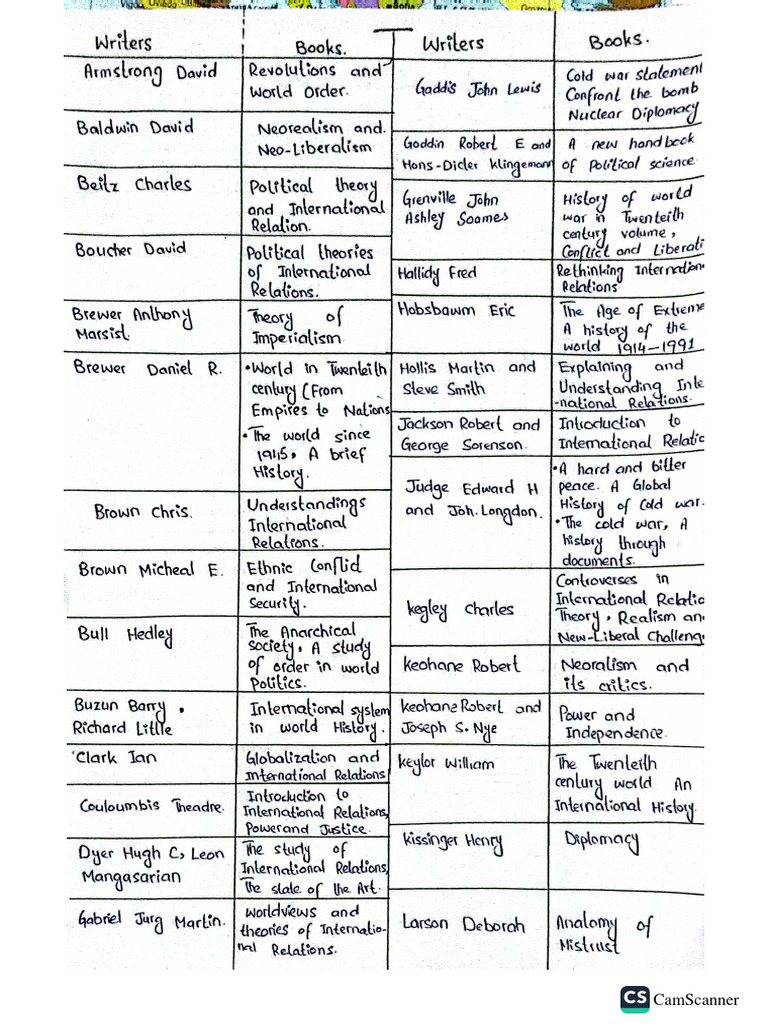 Writers
Books.
Armstrong David
Revolutions and
World Order.
Baldwin David
Neorealism and.
Neo-Liberalism
Beitz Charles
Political theory
and International
Relation.
Boucher David
Political theories
of International
Relations.
Brewer Anthony
Marsist.
Theory of
Imperialism
Brewer Daniel R.
•World in Twentieth
century (From
Empires to Nations
•The world since
1945, A brief
History.
Brown Chris.
Understandings
International
Relations.
Brown Micheal E.
Ethnic Conflict
and International
Security.
Bull Hedley
The Anarchical
society, A study
of order in world
Politics.
Buzun Barry,
Richard Little
International system
in world History.
Clark Ian
Globalization and
International Relations
Couloumbis Theadre.
Introduction to
International Relations,
Power and Justice.
Dyer Hugh C, Leon
Mangasarian
The study of
International Relations,
The state of the Art.
Gabriel Jurg Martin.
Worldviews and
theories of Internatio-
nal Relations.
Writers
Books.
Gaddis John Lewis
Cold war statement
Confront the bomb
Nuclear Diplomacy
Goddin Robert E and
Hans-Dicler Klingemann
A new handbook
of Political science
Grenville John
Ashley Soames
History of world
war in Twenteith
century volume,
Conflict and Liberati
Hallidy Fred
Rethinking Internation
Relations
Hobsbawm Eric
The Age of Extreme
A history of the
world 1914-1991
Hollis Martin and
Steve Smith
Explaining and
Understanding Inte
-national Relations.
Jackson Robert and
George Sorenson.
Introduction to
International Relatic
Judge Edward H
and Joh. Longdon.
•A hard and bitter
peace. A Global
History of Cold war.
•The cold war, A
history through
documents.
Kegley Charles
Controverses in
International Relatic
Theory, Realism an
New-Liberal Challeng
Keohane Robert
Neoralism and
its critics.
Keohane Robert and
Joseph S. Nye
Power and
Independence.
Keylor William
The Twenteith
century world An
International History.
Kissinger Henry
Diplomacy
Larson Deborah
Anatomy of
Mistrust
CS CamScanner